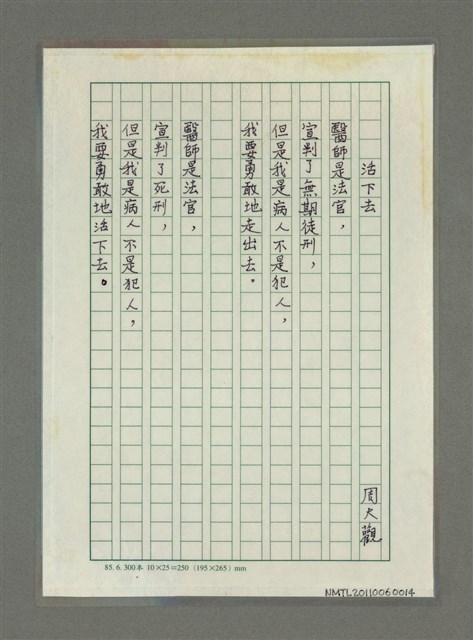 活下去
周大觀
醫師是法官，
宣判了無期徒刑，
但是我是病人不是犯人，
我要勇敢地走出去。
醫師是法官，
宣判了死刑，
但是我是病人不是犯人，
我要勇敢地活下去。
85. 6. 300本 10×25=250 (195×265) mm
NMTL20110060014